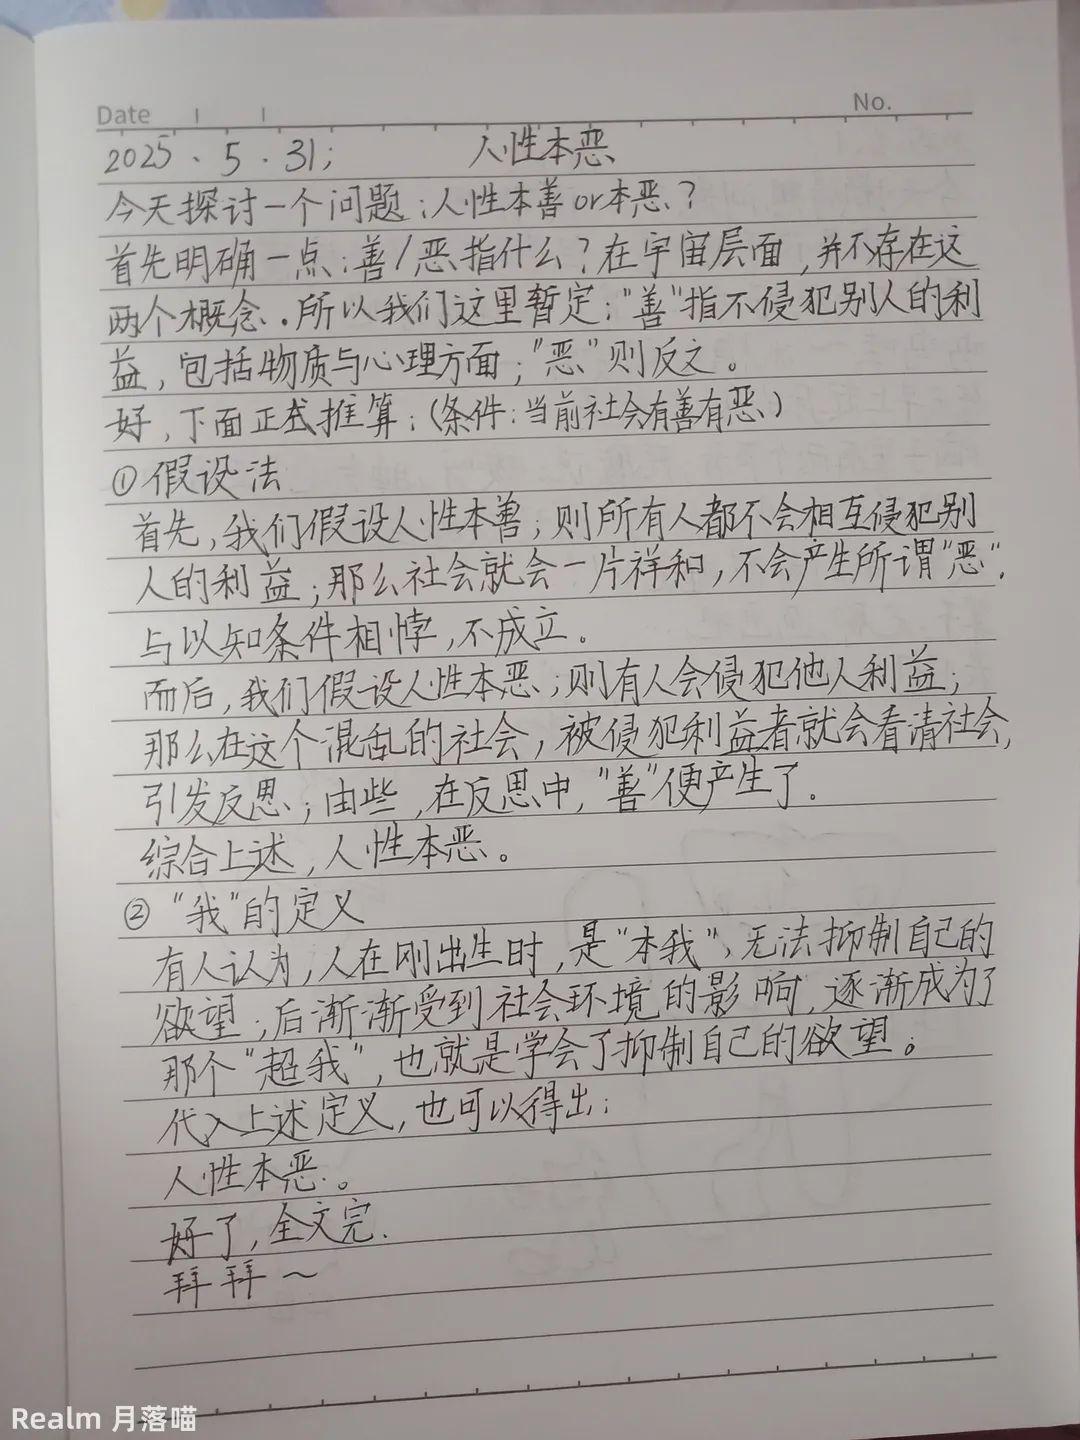 Date
No.
2025.5.31; 人性本恶
今天探讨一个问题:人性本善or本恶?
首先明确一点:善/恶指什么?在宇宙层面,并不存在这
两个概念.所以我们这里暂定:"善"指不侵犯别人的利
益,包括物质与心理方面;"恶"则反之。
好,下面正式推算:(条件:当前社会有善有恶)
①假设法
首先,我们假设人性本善;则所有人都不会相互侵犯别
人的利益;那么社会就会一片祥和,不会产生所谓"恶".
与以知条件相悖,不成立。
而后,我们假设人性本恶;则有人会侵犯他人利益;
那么在这个混乱的社会,被侵犯利益者就会看清社会,
引发反思;由些,在反思中,"善"便产生了.
综合上述,人性本恶。
②"我"的定义
有人认为,人在刚出生时,是"本我",无法抑制自己的
欲望;后渐渐受到社会环境的影响,逐渐成为了
那个"超我",也就是学会了抑制自己的欲望。
代入上述定义,也可以得出:
人性本恶.。
好了,全文完.
拜拜~
Realm 月落喵